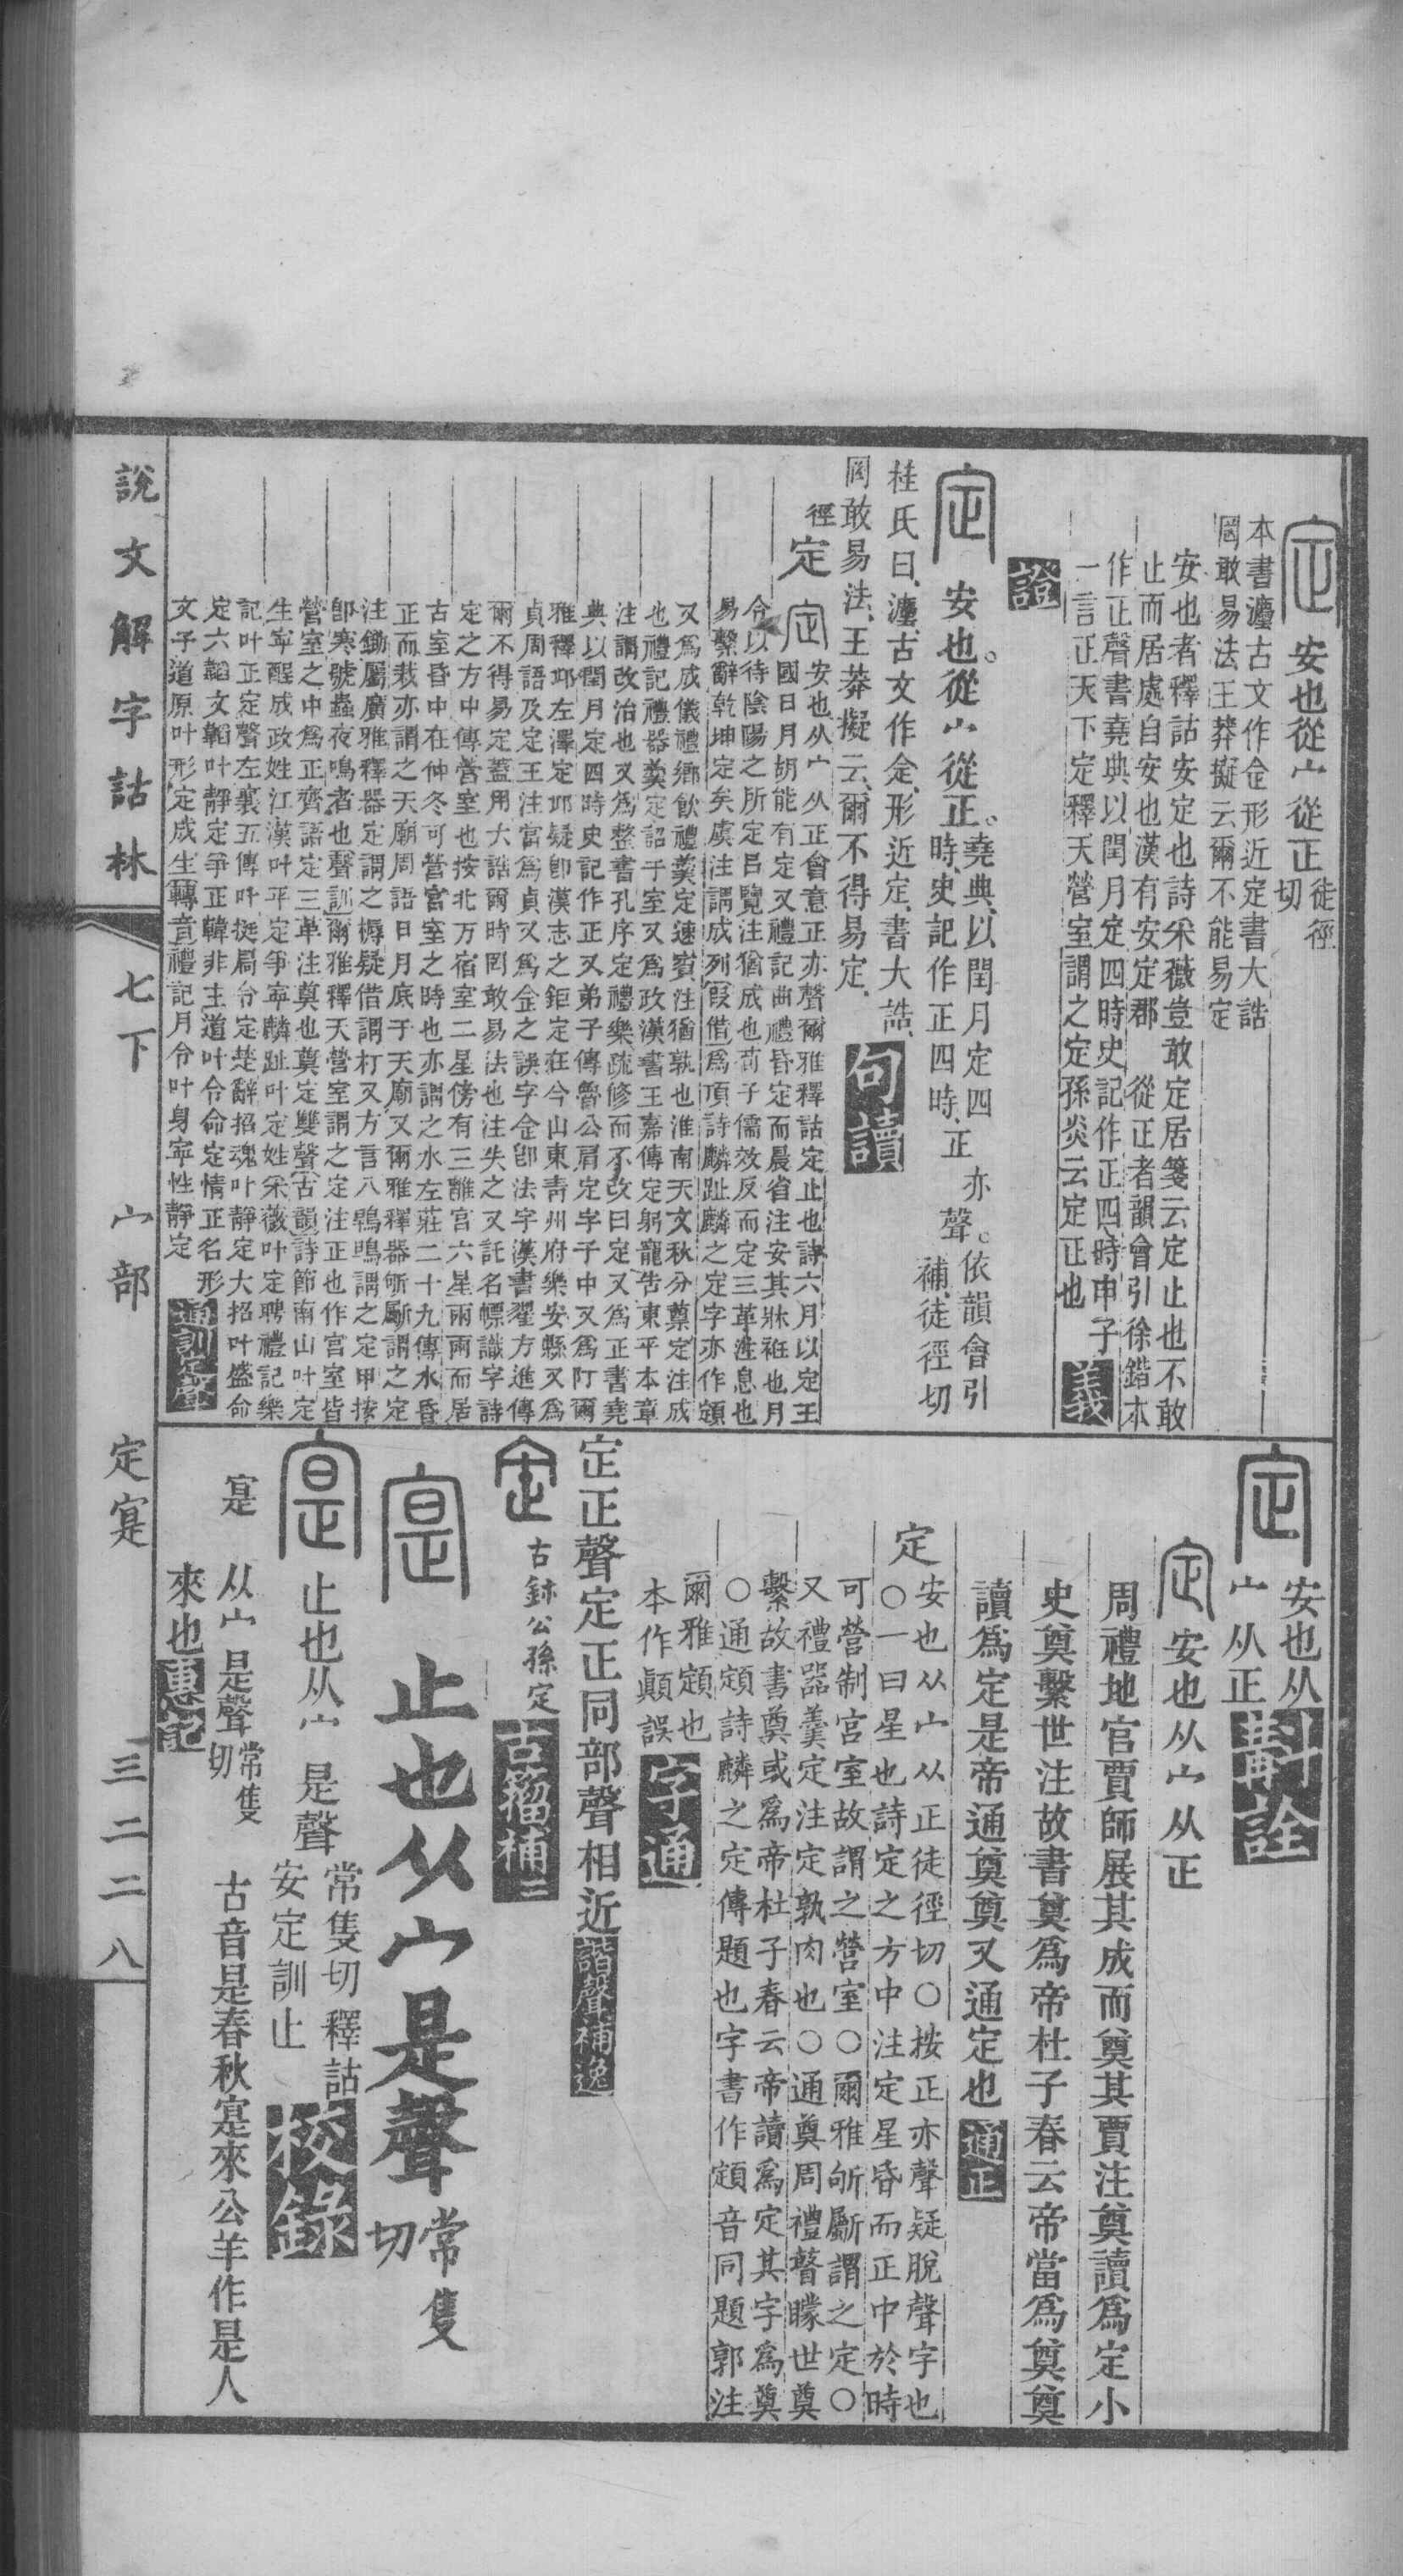 定 安也從宀從正徒徑切
本書灋古文作佱形近定書大誥
罔敢易法王莽擬云爾不能易定
安也者釋詁安定也詩采薇豈敢定居箋云定止也不敢
止而居處自安也漢有安定郡 從正者韻會引徐鍇本
作正聲書堯典以閏月定四時史記作正四時申子
一言正天下定釋天營室謂之定孫炎云定正也 義
證
定 安也。從宀從正。堯典、以閏月定四時、史記作正四時、正亦聲。依韻會引補、徒徑切
桂氏曰、灋、古文作佱、形近定、書大誥、
罔敢易法、王莽擬云、爾不得易定、 句讀
徑定 安也从宀从正會意正亦聲爾雅釋詁定止也詩六月以定王
國日月胡能有定又禮記曲禮昏定而晨省注安其牀衽也月
令以待陰陽之所定呂覽注猶成也荀子儒效反而定三革注息也
易繫辭乾坤定矣虞注謂成列叚借爲頂詩麟趾麟之定字亦作顁
又爲成儀禮鄉飲禮羹定速賓注猶孰也淮南天文秋分蔈定注成
也禮記禮器羹定詔于室又爲政漢書王嘉傳定躬寵告東平本章
注謂改治也又爲整書孔序定禮樂疏修而不改曰定又爲正書堯
典以閏月定四時史記作正又弟子傳魯公肩定字子中又爲阠爾
雅釋邱左澤定邱疑卽漢志之鉅定在今山東靑州府樂安縣又爲
貞周語及定王注當爲貞又爲佱之誤字佱卽法字漢書翟方進傳
爾不得易定蓋用大誥爾時罔敢易法也注失之又託名幖識字詩
定之方中傳營室也按北方宿室二星傍有三離宮六星兩兩而居
古室昏中在仲冬可營宮室之時也亦謂之水左莊二十九傳水昏
正而栽亦謂之天廟周語日月底于天廟又爾雅釋器斪斸謂之定
注鋤屬廣雅釋器定謂之耨疑借謂朾又方言八鴇鴠謂之定甲按
卽寒號蟲夜鳴者也聲訓爾雅釋天營室謂之定注正也作宮室皆
營室之中爲正齊語定三革注奠也奠定雙聲古韻詩節南山叶定
生寜酲成政姓江漢叶平定爭寜麟趾叶定姓采薇叶定聘禮記樂
記叶正定聲左襄五傳叶挺扃令定楚辭招魂叶靜定大招叶盛命
定六韜文韜叶靜定爭正韓非主道叶令命定情正名形
文子道原叶形定成生轉音禮記月令叶身寜性靜定 通訓定聲
定 安也从宀从正 斠詮
定 安也从宀从正
周禮地官賈師展其成而奠其賈注奠讀爲定小
史奠繫世注故書奠爲帝杜子春云帝當爲奠奠
讀爲定是帝通奠奠又通定也 通正
定 安也从宀从正徒徑切〇按正亦聲疑脫聲字也
〇一曰星也詩定之方中注定星昏而正中於時
可營制宮室故謂之營室〇爾雅斪斸謂之定〇
又禮器羹定注定孰肉也〇通奠周禮瞽矇世奠
繫故書奠或爲帝杜子春云帝讀爲定其字爲奠
〇通顁詩麟之定傳題也字書作顁音同題郭注
爾雅顁也
本作顛誤 字通
定正聲定正同部聲相近 諧聲補逸
古鉥公孫定 古籀補
寔 止也从宀是聲常隻切
寔 止也从宀是聲常隻切釋詁安定訓止 校錄
寔 从宀是聲常隻切 古音是春秋寔來公羊作是人
來也 惠記
說文解字詁林 七下 宀部 定寔 三二二八